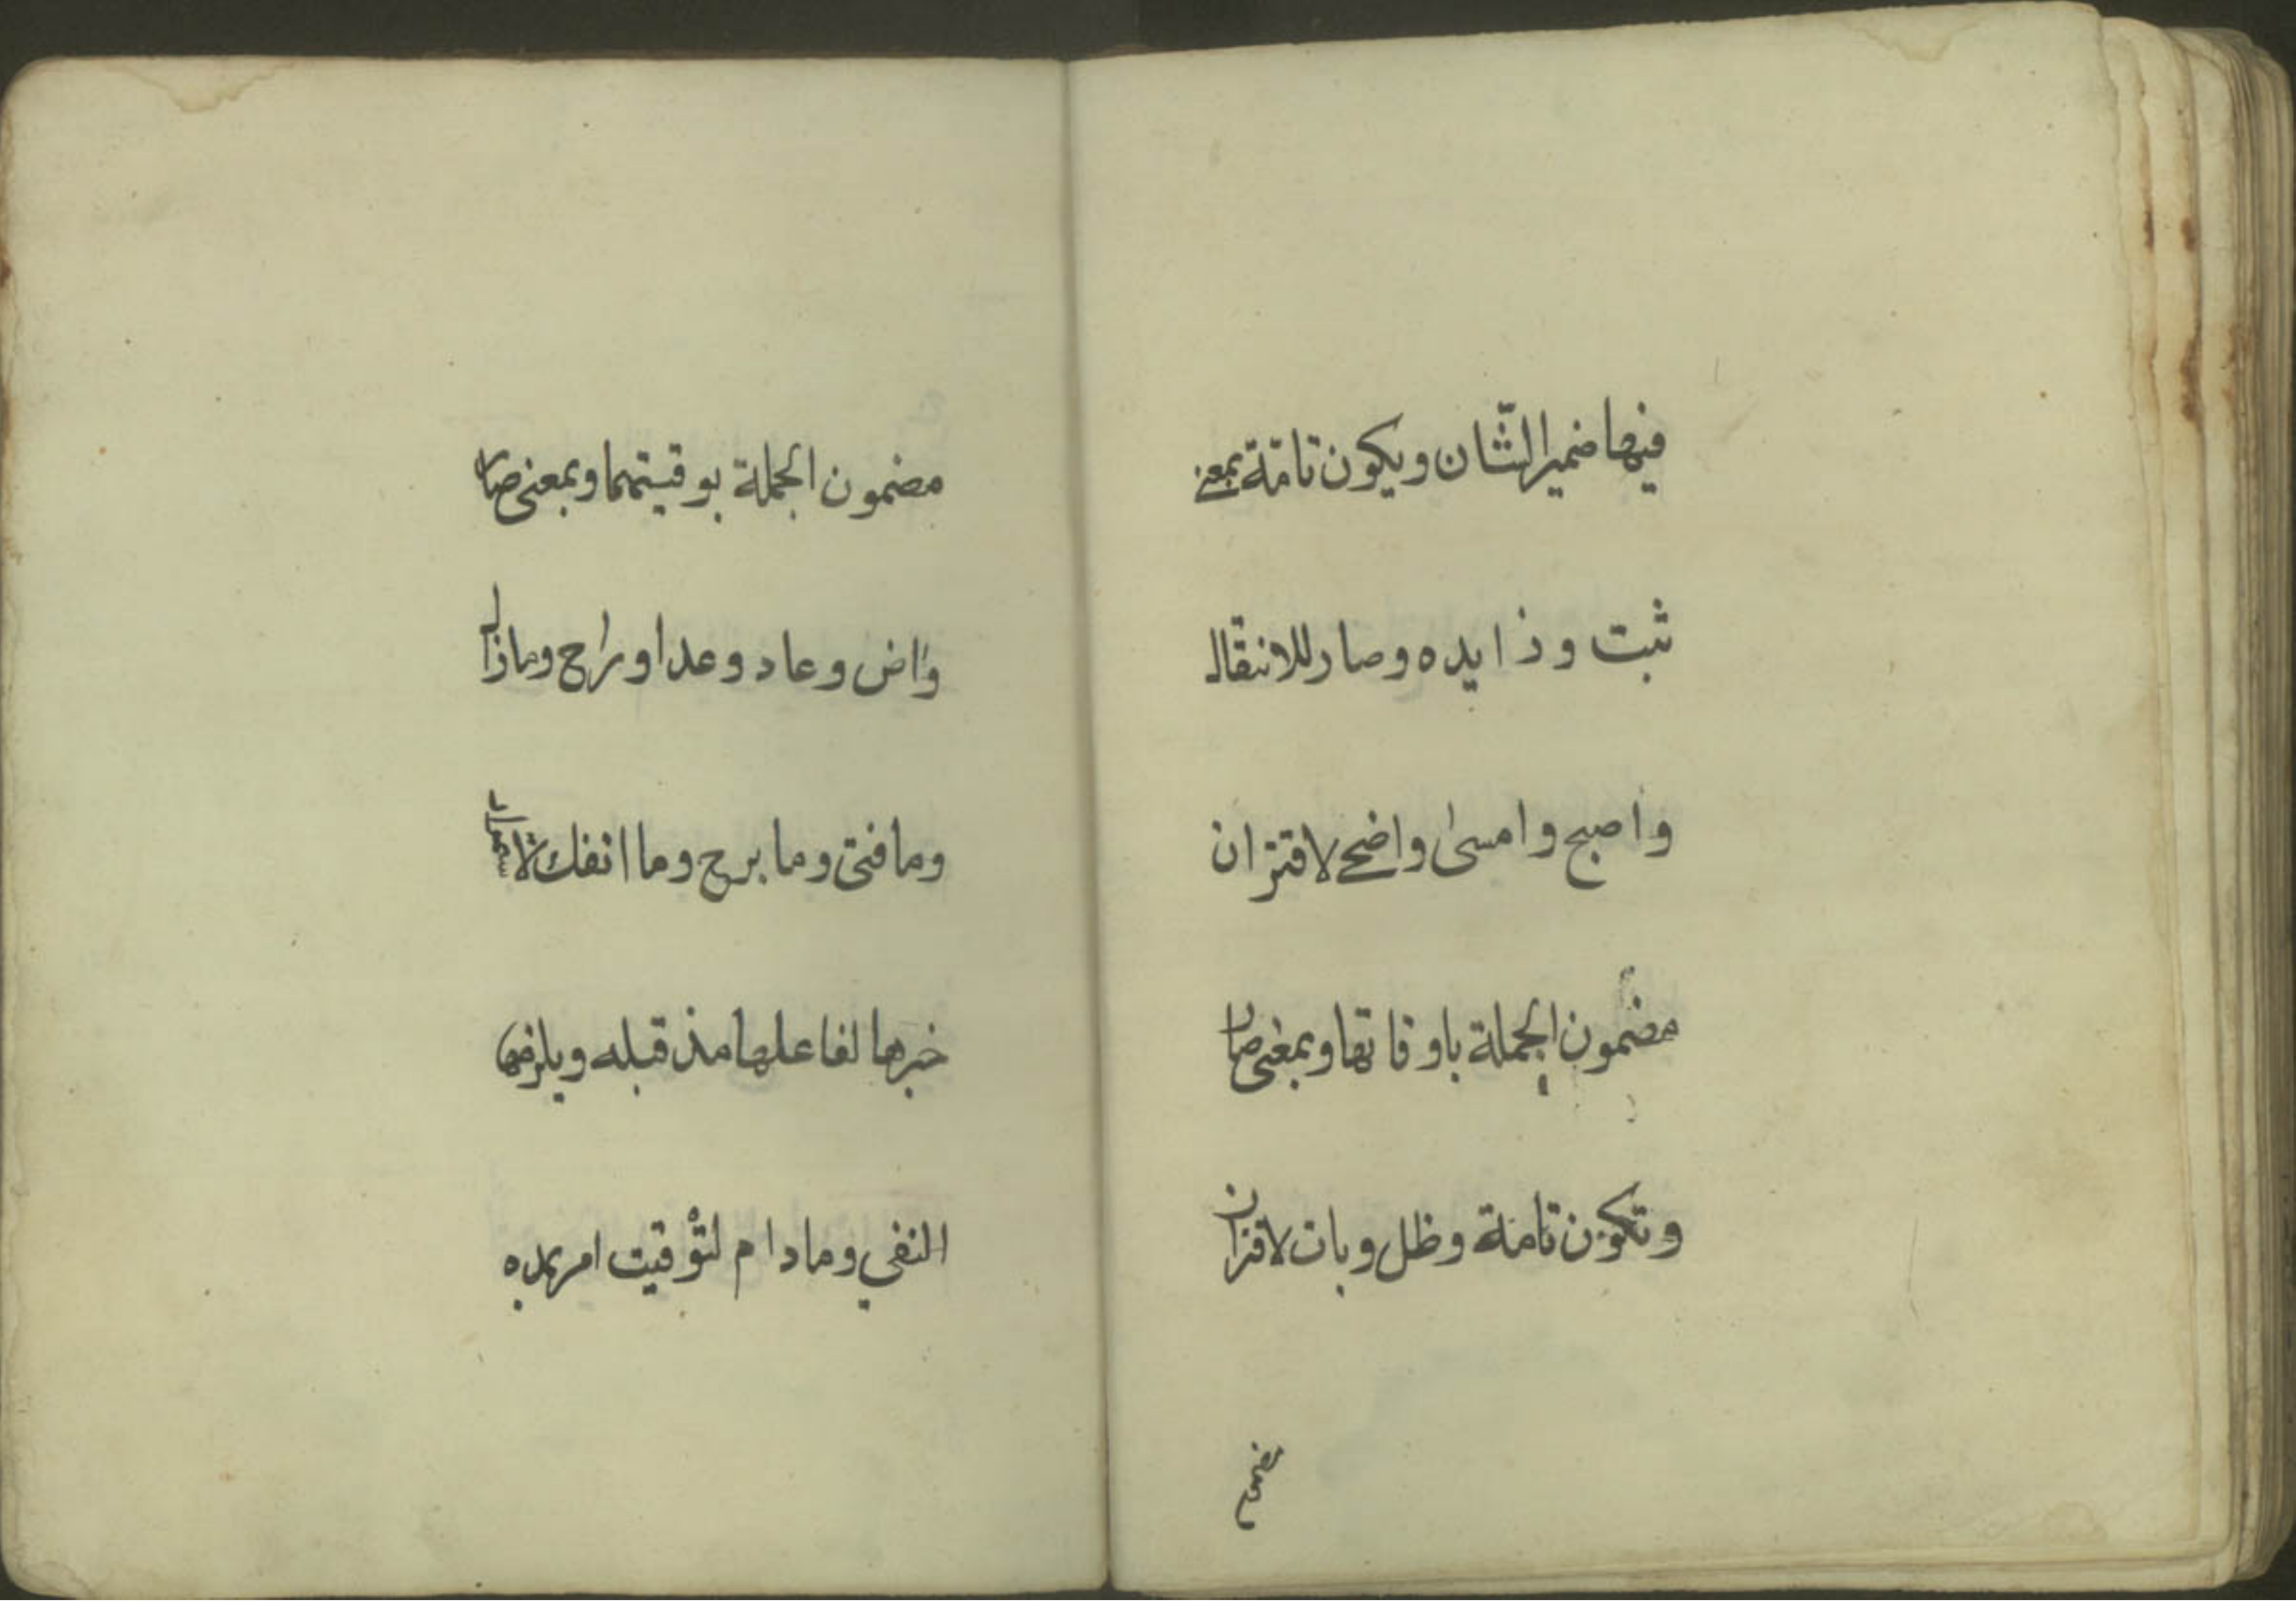 فيها ضمير الشّان ويكون تامّة بمعنى
ثبت وذايده وصار للانتقال
واصبح وامسى واضحى لاقتران
مضمون الجملة باوقاتها وبمعنى صار
وتكون تامة وظل وبات لاقتران
مضمون
مضمون الجملة بوقيتهما وبمعنى صار
واض وعاد وعدا وراح ومازال
وما فتئ وما برح وما انفك لاستمرار
خبرها لفاعلها مذ قبله ويلزمها
النفي ومادام لتوقيت امر بمده